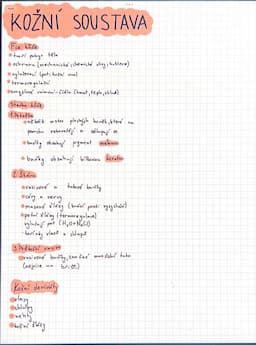 KOŽNÍ SOUSTAVA
Fce kůže
tvoří pokryv těla
ochrana (mechanické, chemické vlivy, bakterie)
vylučování (pot, kožní maz)
termoregulační
smyslové vnímání - čidla (hmat, teplo, chlad)
Stavba kůže
1. Pokožka
několik vrstev plochých buněk, které na
povrchu rohovatějí a odlupují se
buňky obsahují pigment melanin
buňky obsahují bílkovinu keratin
2. Škára
vazivové a tukové buňky
cévy a nervy
mazové žlázy (brání proti vysychání)
potní žlázy (termoregulace)
vylučují pot (H₂O + NaCl)
kořínky vlasů a chlupů
3. Podkožní vazivo
vazivové buňky, zás
(nejvíce na
Kožní deriváty
vlasy
chlupy
nehty
kožní žlázy